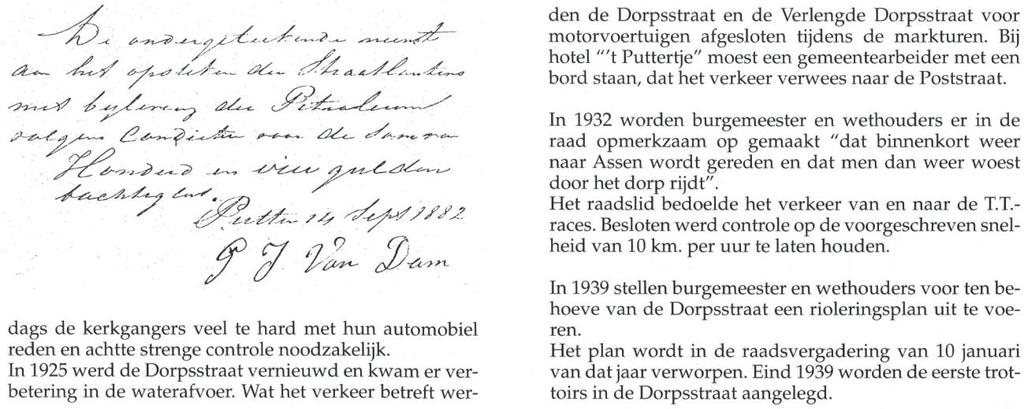 De ondergeteekende neemt
aan het opsteken der Straatlantens
met bylevering der Petroleum
volgens Condietien voor de Somma van
Honderd en vier gulden
tachtig cent.
Putten 14 Sept 1882
P J Van Dam
dags de kerkgangers veel te hard met hun automobiel
reden en achtte strenge controle noodzakelijk.
In 1925 werd de Dorpsstraat vernieuwd en kwam er ver-
betering in de waterafvoer. Wat het verkeer betreft wer-
den de Dorpsstraat en de Verlengde Dorpsstraat voor
motorvoertuigen afgesloten tijdens de markturen. Bij
hotel "'t Puttertje" moest een gemeentearbeider met een
bord staan, dat het verkeer verwees naar de Poststraat.
In 1932 worden burgemeester en wethouders er in de
raad opmerkzaam op gemaakt "dat binnenkort weer
naar Assen wordt gereden en dat men dan weer woest
door het dorp rijdt".
Het raadslid bedoelde het verkeer van en naar de T.T.-
races. Besloten werd controle op de voorgeschreven snel-
heid van 10 km. per uur te laten houden.
In 1939 stellen burgemeester en wethouders voor ten be-
hoeve van de Dorpsstraat een rioleringsplan uit te voe-
ren.
Het plan wordt in de raadsvergadering van 10 januari
van dat jaar verworpen. Eind 1939 worden de eerste trot-
toirs in de Dorpsstraat aangelegd.